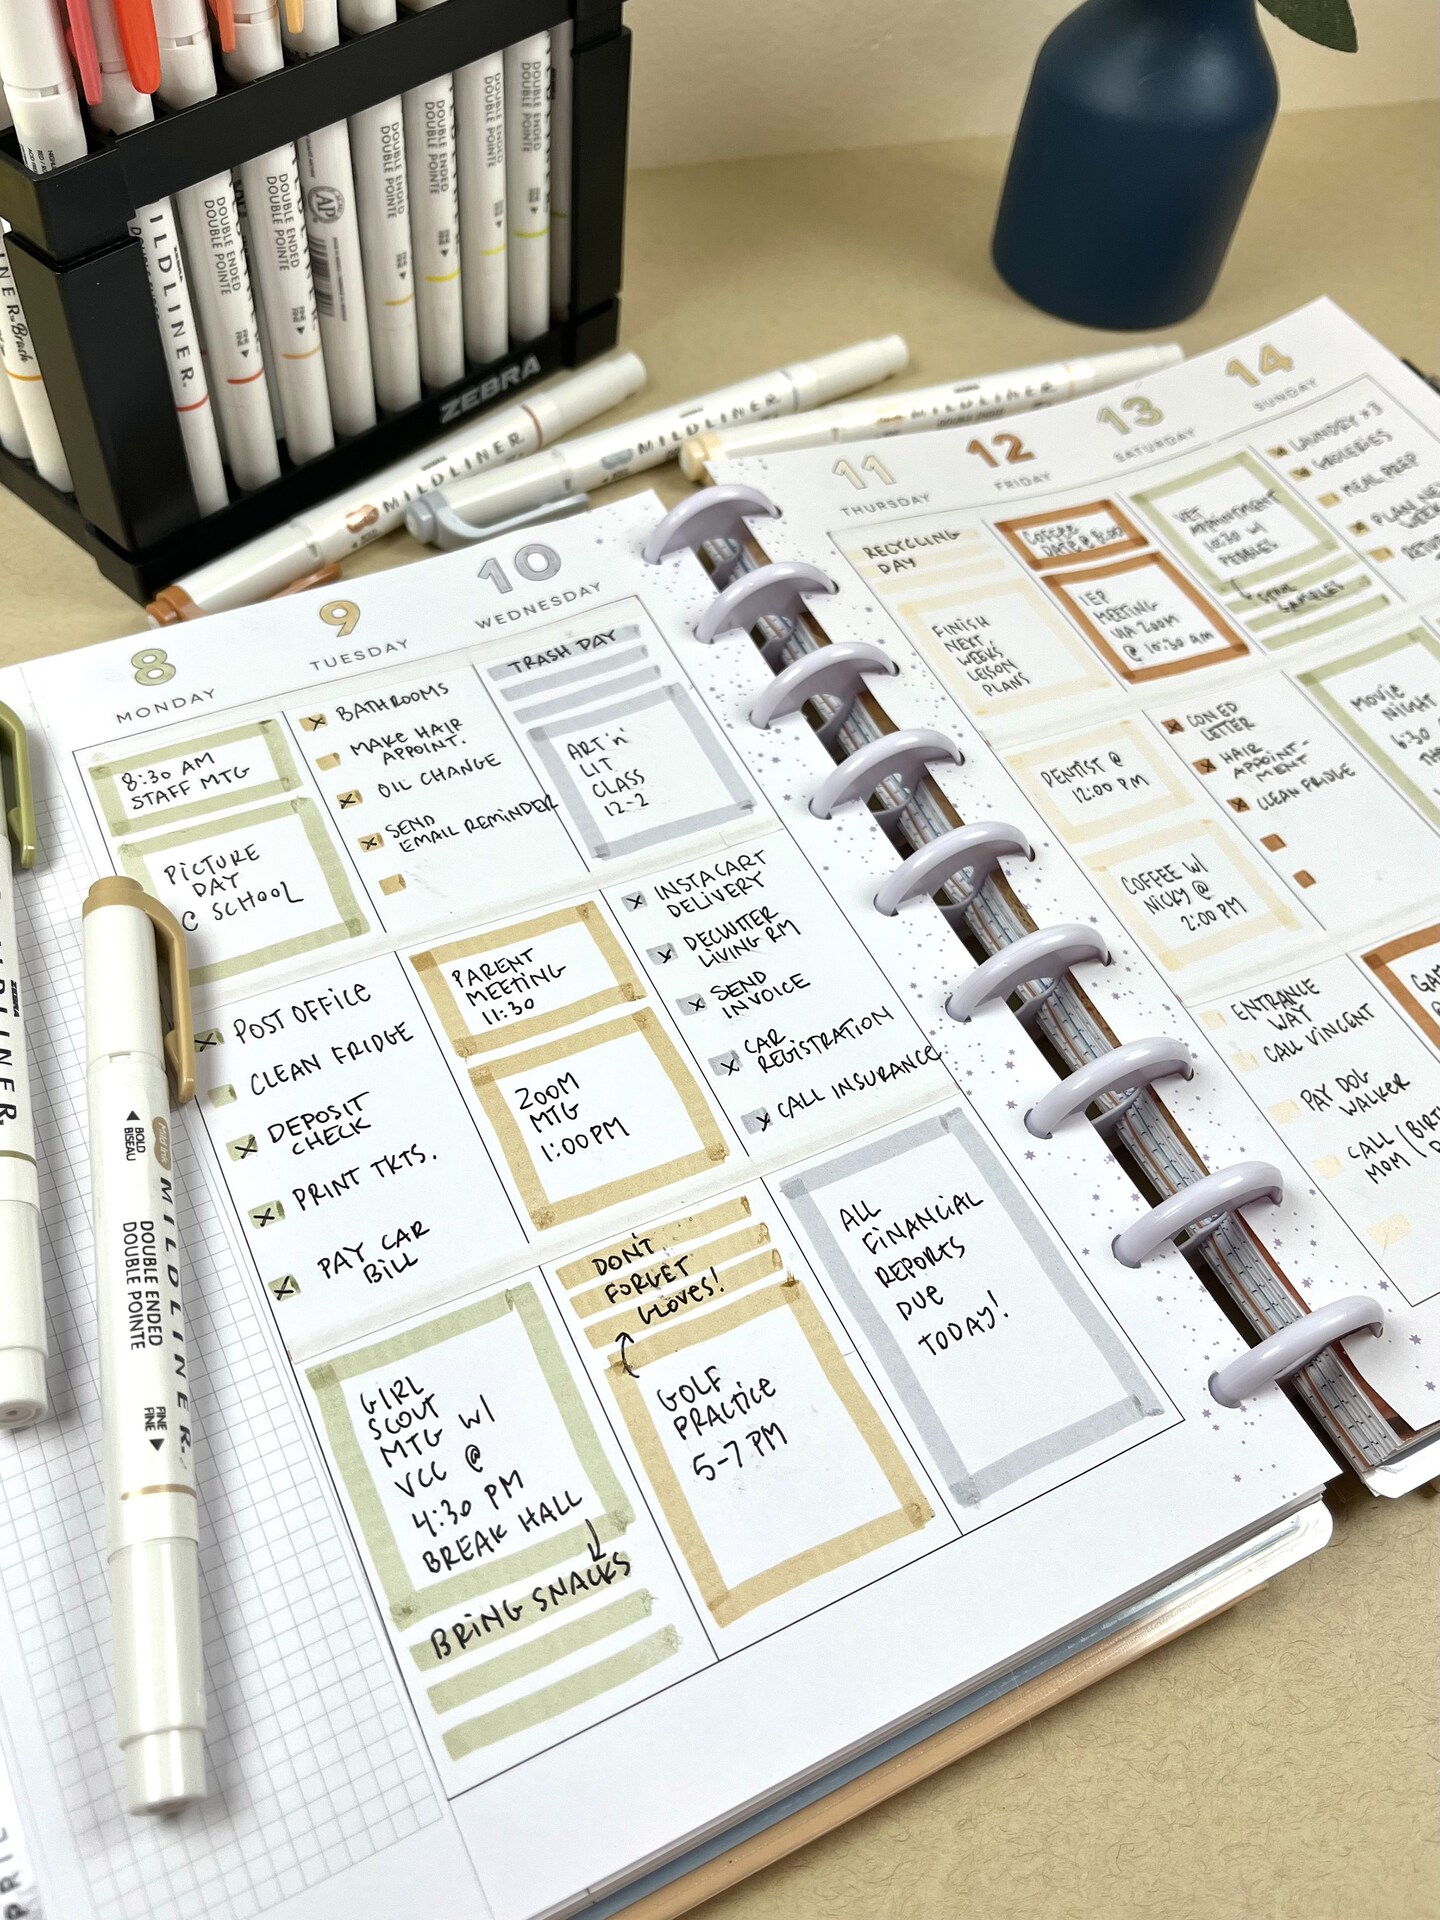 ZEBRA
MILDLINER
MILDLINER
MILDLINER
MILDLINER.
DOUBLE ENDED
DOUBLE POINTE
DOUBLE ENDED
DOUBLE POINTE
DOUBLE ENDED
DOUBLE POINTE
DOUBLE ENDED
DOUBLE POINTE
DOUBLE ENDED
DOUBLE POINTE
DOUBLE ENDED
DOUBLE POINTE
AP
Brush
8
MONDAY
8:30 AM
STAFF MTG
PICTURE
DAY
C SCHOOL
POST OFFICE
CLEAN FRIDGE
DEPOSIT
CHECK
PRINT TKTS.
PAY CAR
BILL
GIRL
SCOUT
MTG W/
VCC @
4:30 PM
BREAK HALL
BRING SNACKS
9
TUESDAY
BATHROOMS
MAKE HAIR
APPOINT.
OIL CHANGE
SEND
EMAIL REMINDER
PARENT
MEETING
11:30
ZOOM
MTG
1:00 PM
DON'T
FORGET
GLOVES!
GOLF
PRACTICE
5-7 PM
10
WEDNESDAY
TRASH DAY
ART 'n'
LIT
CLASS
12-2
INSTACART
DELIVERY
DECLUTTER
LIVING RM
SEND
INVOICE
CAR
REGISTRATION
CALL INSURANCE
ALL
FINANCIAL
REPORTS
DUE
TODAY!
11
THURSDAY
RECYCLING
DAY
FINISH
NEXT
WEEK'S
LESSON
PLANS
DENTIST @
12:00 PM
COFFEE W/
NICKY @
2:00 PM
ENTRANCE
WAY
CALL VINCENT
PAY DOG
WALKER
CALL
MOM
12
FRIDAY
COFFEE
DATE @ 8:00
IEP
MEETING
VIA ZOOM
@ 10:30 am
CONED
LETTER
HAIR
APPOINT-
MENT
CLEAN FRIDGE
13
SATURDAY
VET
APPOINTMENT
10:30 W/
PEBBLES
MOVIE
NIGHT
6:30
14
SUNDAY
LAUNDRY x3
MEAL PREP
PLAN
BOLD
BISEAU
MILDLINER.
DOUBLE ENDED
DOUBLE POINTE
FINE
FINE